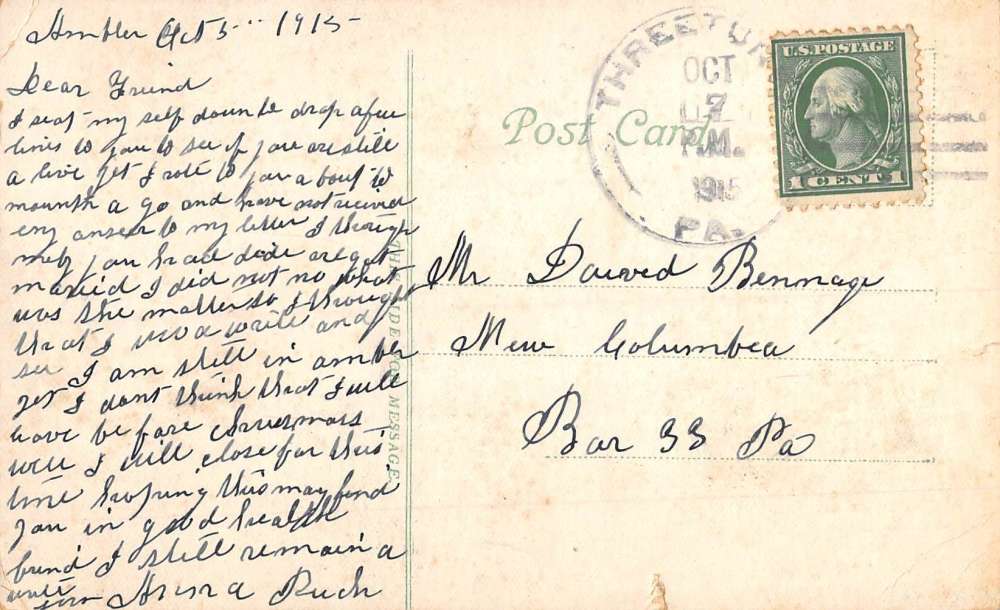 Ambler Oct 5 1915
Dear Friend
I seat my self down to drop a few
lines to you to see if you are still
a live yet I rote to you a bout to
mounth a go and have not recieved
eny anser to my letter I though
you had died are got
maried I did not no what
was the matter so I thought
that I wood write and
see I am still in ambler
yet I dont think that I will
leave be fore
will I will close for this
time hopping this may find
you in good health
frend I still remain a
Anna Ruch
THIS SIDE FOR MESSAGE
Post Card
THREETU
OCT
7
P.M.
1915
PA.
U.S. POSTAGE
1 CENT 1
Mr Dawed Bennage
New Columbea
Box 33 Pa